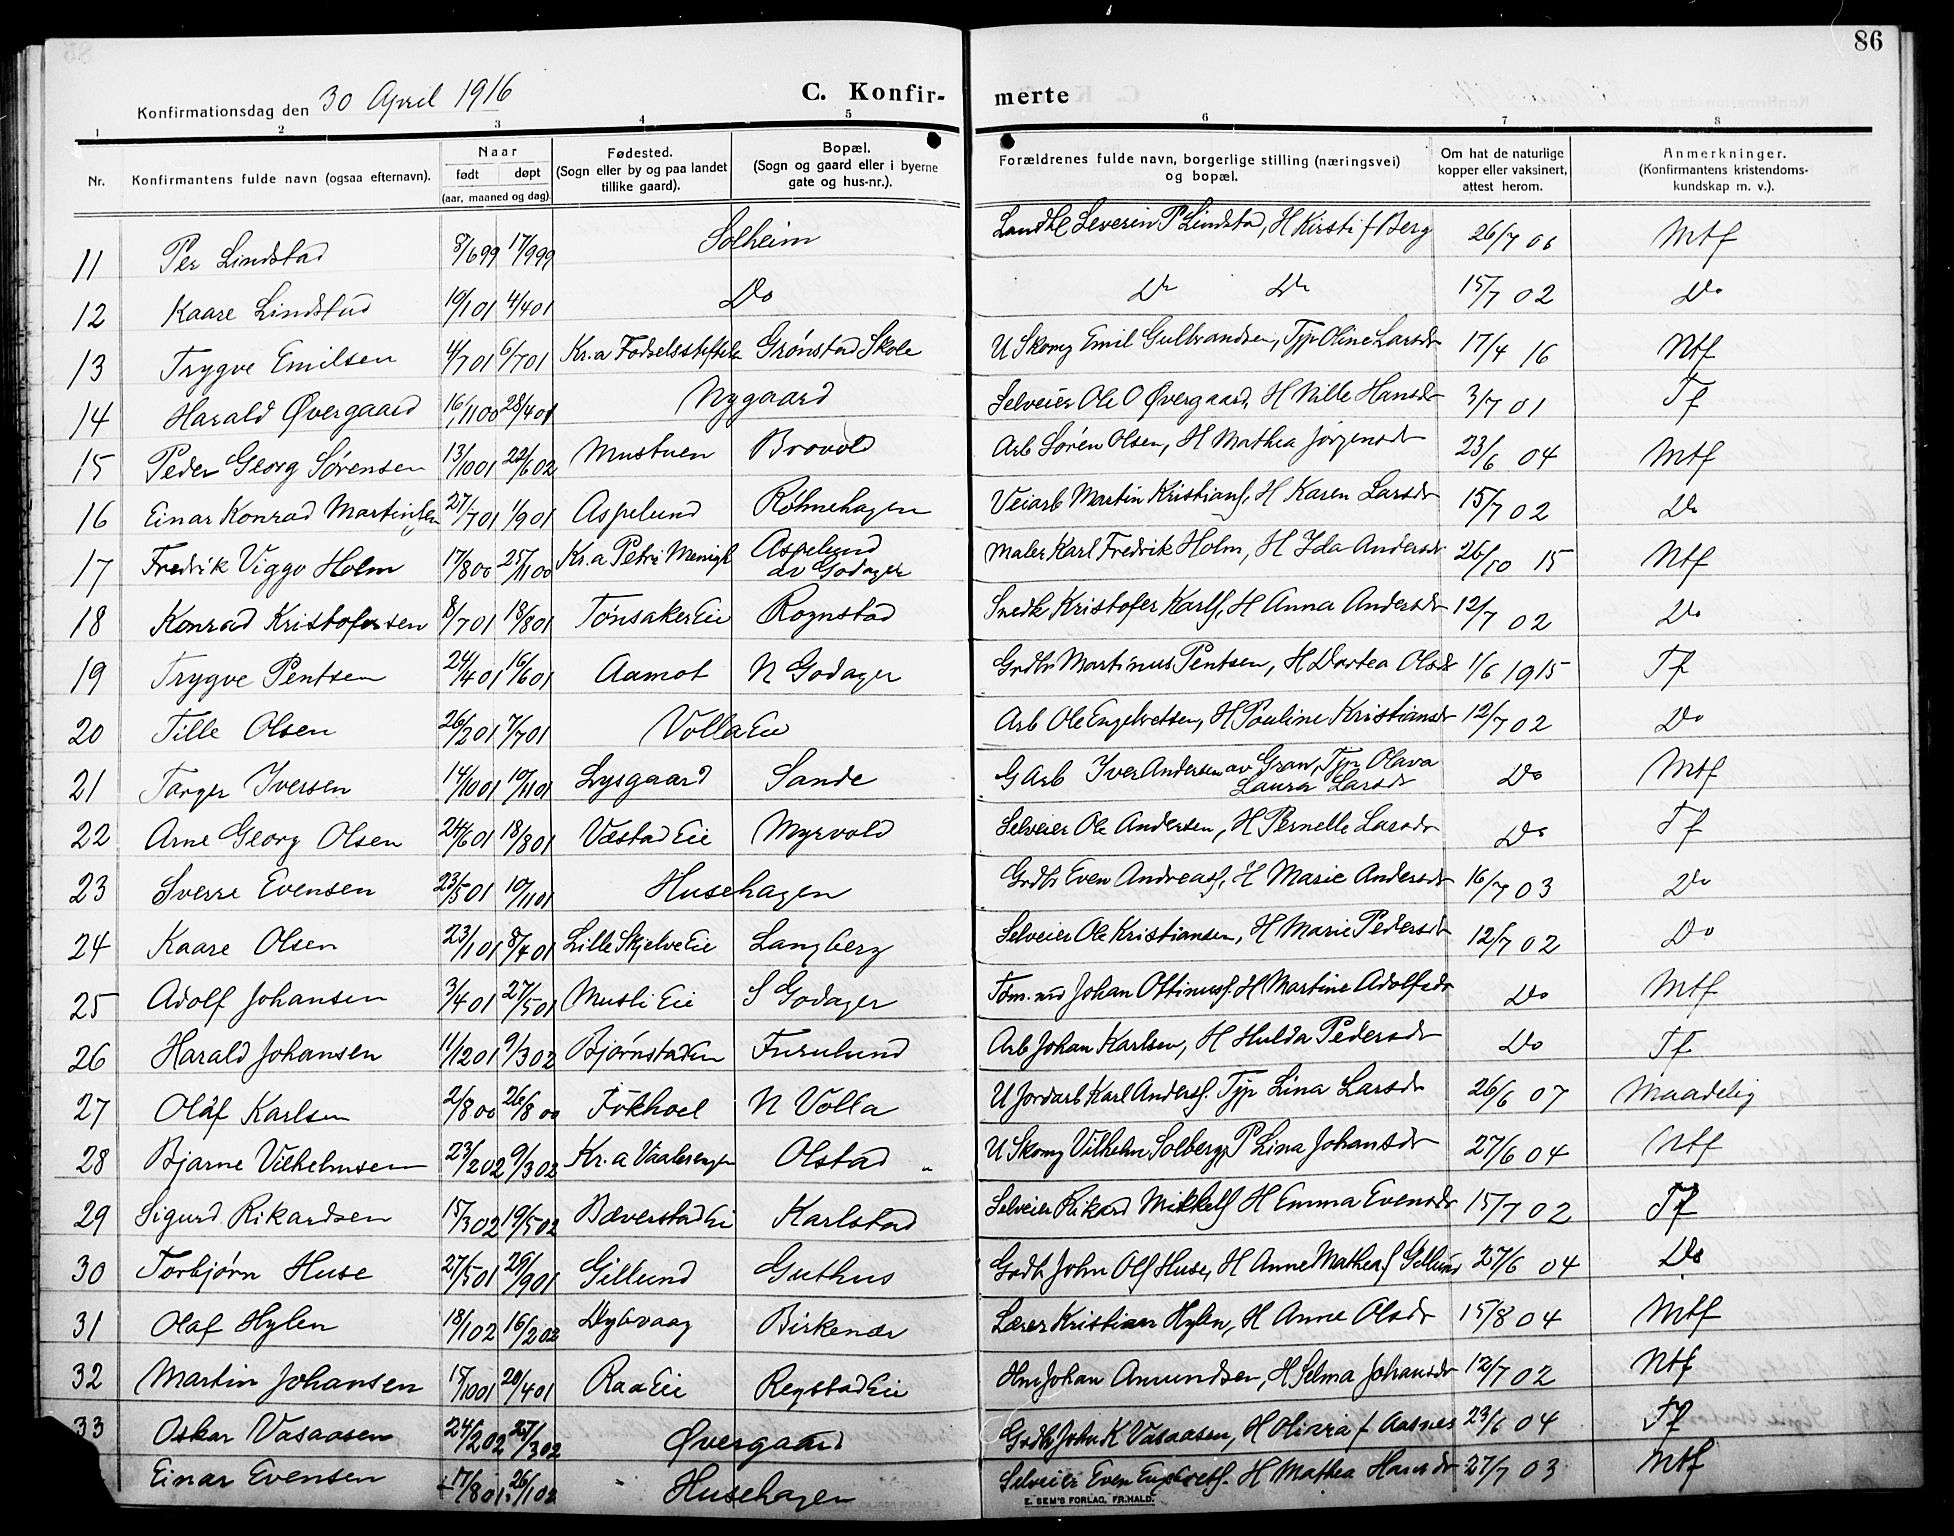 86
Konfirmationsdag den 30 April 1916
C. Konfir-merte
1 2 3 4 5 6 7 8
Nr. Konfirmantens fulde navn (ogsaa efternavn). Naar født døpt (aar, maaned og dag). Fødested. (Sogn eller by og paa landet tillike gaard). Bopæl. (Sogn og gaard eller i byerne gate og hus-nr.). Forældrenes fulde navn, borgerlige stilling (næringsvei) og bopæl. Om hat de naturlige kopper eller vaksinert, attest herom. Anmerkninger. (Konfirmantens kristendoms-kundskap m. v.).
11 Per Lindstad 8/6 99 17/9 99 Solheim Landhl Severin P Lindstad, H Kirsti f Berg 26/7 06 Mtf
12 Kaare Lindstad 19/1 01 4/4 01 Do Do Do 15/7 02 Do
13 Trygve Emilsen 4/7 01 6/7 01 Kr.a Fødselsstiftele Grønstad Skole U Skomg Emil Gulbrandsen, Typ Oline Larsdr 17/4 16 Ntf
14 Harald Øvergaard 16/11 00 28/4 01 Nygaard Selveier Ole O Øvergaard, H Nille Hansdr 3/7 01 Tf
15 Peder Georg Sørensen 13/10 01 22/6 02 Mustuen Brovold Arb Søren Olsen, H Mathea Jørgensdr 23/6 04 Mtf
16 Einar Konrad Martinsen 27/7 01 1/9 01 Aspelund Røhnehagen Veiarb Martin Kristians, H Karen Larsdr 15/7 02 Do
17 Fredrik Viggo Holm 17/8 00 25/11 00 Kr.a Petri Menigh Aspelund av Godager Maler Karl Fredrik Holm, H Ida Andersdr 26/10 15 Ntf
18 Konrad Kristofersen 8/7 01 18/8 01 Tønsaker Eie Rognstad Snedk Kristofer Karls, H Anna Andersdr 12/7 02 Do
19 Trygve Pentsen 24/4 01 16/6 01 Aamot N Godager Grdbr Martinus Pentsen, H Dortea Olsdr 1/6 1915 Tf
20 Tille Olsen 26/2 01 7/7 01 Volla Eie Arb Ole Engebretsen, H Pouline Kristiansdr 12/7 02 Do
21 Torger Iversen 14/10 01 10/11 01 Lysgaard Sande G Arb Iver Andersen av Gran, Typ Olava Laura Larsdr Do Mtf
22 Arne Georg Olsen 24/6 01 18/8 01 Væstad Eie Myrvold Selveier Ole Andersen, H Pernelle Larsdr Do Tf
23 Sverre Evensen 23/5 01 10/11 01 Husehagen Grdbr Even Andreas, H Marie Andersdr 16/7 03 Do
24 Kaare Olsen 23/1 01 8/4 01 Lille Skjelve Eie Langberg Selveier Ole Kristiansen, H Marie Pedersdr 12/7 02 Do
25 Adolf Johansen 3/4 01 27/5 01 Musli Eie S Godager Tøm.md Johan Ottinus. H Martine Adolfsdr Do Mtf
26 Harald Johansen 11/12 01 9/3 02 Bjørnstad Eie Furulund Arb Johan Karlsen, H Hulda Pedersdr Do Tf
27 Olaf Karlsen 2/8 00 26/8 00 Fokhol N Volla U Jordarb Karl Anders. Typ Lina Larsdr 26/6 07 Maadelig
28 Bjarne Vilhelmsen 23/2 02 9/3 02 Kr.a Vaalerengen Olstad U Skomg Vilhelm Solberg, P Lina Johansdr 27/6 04 Ntf
29 Sigurd Rikardsen 15/3 02 19/5 02 Bæverstad Ei Karlstad Selveier Rikard Mikkels H Emma Evensdr 15/7 02 Tf
30 Torbjørn Huse 27/5 01 29/9 01 Gillund Guthus Grdbr John Ols Huse, H Anne Mathea f Gillund 27/6 04 Do
31 Olaf Hylen 18/1 02 16/2 02 Dybvaag Birkenær Lærer Kristian Hylen, H Anne Olsdr 15/8 04 Mtf
32 Martin Johansen 15/10 01 20/4 01 Raa Eie Regstad Eie Hm Johan Amundsen, H Selma Johansdr 12/7 02 Ntf
33 Oskar Vasaasen 24/2 02 27/3 02 Øvergaard Grdbr John K Vasaasen, H Olivia f Aasnes 23/6 04 Tf
Einar Evensen 17/8 01 26/1 02 Husehagen Selveier Even Engebrets. H Mathea Hansdr 27/7 03 Mtf
E. SEM'S FORLAG, FR.HALD.